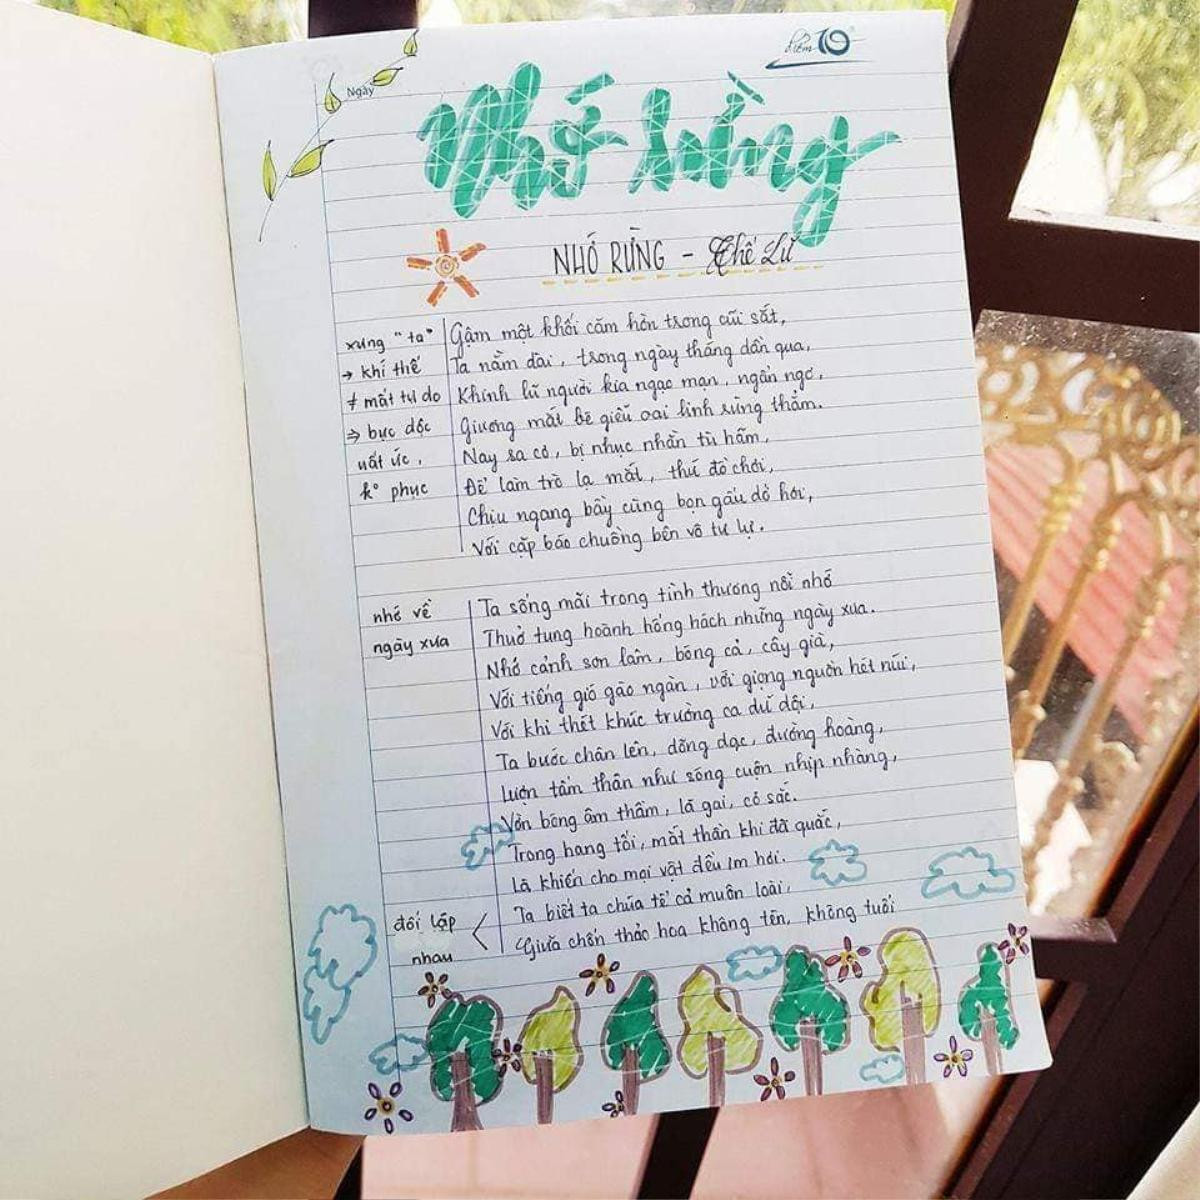 điểm 10
Ngày
Nhớ rừng
NHỚ RỪNG - Thế Lữ
xưng "ta"
→ khí thế
≠ mất tự do
⇒ bực dộc
uất ức,
k° phục
Gậm một khối căm hờn trong cũi sắt,
Ta nằm dài, trông ngày tháng dần qua,
Khinh lũ người kia ngạo mạn, ngẩn ngơ,
Giương mắt bé giễu oai linh rừng thẳm.
Nay sa cơ, bị nhục nhằn tù hãm,
Để làm trò lạ mắt, thứ đồ chơi,
Chịu ngang bầy cùng bọn gấu dở hơi,
Với cặp báo chuồng bên vô tư lự.
nhớ về
ngày xưa
Ta sống mãi trong tình thương nỗi nhớ
Thuở tung hoành hống hách những ngày xưa.
Nhớ cảnh sơn lâm, bóng cả, cây già,
Với tiếng gió gào ngàn, với giọng nguồn hét núi,
Với khi thét khúc trường ca dữ dội,
Ta bước chân lên, dõng dạc, đường hoàng,
Lượn tấm thân như sóng cuộn nhịp nhàng,
Vờn bóng âm thầm, lá gai, cỏ sắc.
Trong hang tối, mắt thần khi đã quắc,
Là khiến cho mọi vật đều im hơi.
đối lập
nhau
Ta biết ta chúa tể cả muôn loài,
Giữa chốn thảo hoa không tên, không tuổi